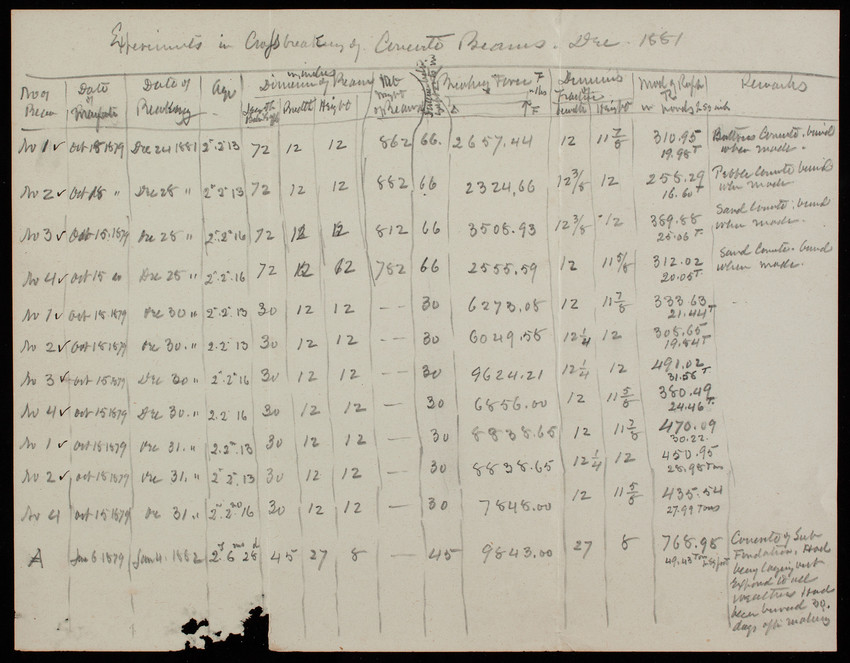 Experiments in Crossbreaking of Concrete Beams. Dec. 1881
No of Beam Date of Date of Breaking Age Dimensions of Beams in inches Breaking Force Dimens of Fracture Remarks
Length Breadth Height of Beam Breadth Height
No 1 ✓ Oct 18 1879 Dec 24 1881 2" 2" 13 72 12 12 862 66. 2657.44 12 11 7/8 310.95 Ballast Concrete, buried
19.98 T when made.
No 2 ✓ Oct 18 " Dec 28 " 2" 2" 13 72 12 12 882 66 2324,66 12 3/8 12 258.29 Pebble Concrete buried
16.60 T when made
No 3 ✓ Oct 15. 1879 Dec 28 " 2". 2" 16 72 12 12 812 66 3508.93 12 3/8 12 389.88 Sand Concrete. buried
25.06 T. when made.
No 4 ✓ Oct 15 Dec 28 " 2". 2". 16 72 12 12 782 66 2555.59 12 11 5/8 312.02 Sand Concrete. buried
20.05 T. when made.
No 1 ✓ Oct 18. 1879 Dec 30 " 2". 2". 13 30 12 12 -- 30 6273.08 12 11 7/8 333 63
21.44 T
No 2 ✓ Oct 18 1879 Dec 30. " 2. 2" 13 30 12 12 -- 30 6049.58 12 1/4 12 308.65
19.84 T
No 3 ✓ Oct 15 1879 Dec 30 " 2. 2" 16 30 12 12 -- 30 9624.21 12 1/4 12 491.02
31.58 T
No 4 ✓ Oct 15 1879 Dec 30. " 2. 2" 16 30 12 12 — 30 6856.00 12 11 5/8 380.49
24.46 T.
No 1 ✓ Oct 18 1879 Dec 31. " 2. 2". 13 30 12 12 — 30 8838.65 12 11 7/8 470.09
30.22.
No 2 ✓ Oct 18 1879 Dec 31. " 2" 2". 13 30 12 12 — 30 8838.65 12 1/4 12 450.95
28.98 Tons
No 4 Oct 15 1879 Dec 31. " 2". 2" 16 30 12 12 — 30 7848.00 12 11 5/8 435.54
27.99 Tons
A Jan 6 1879 Jan 4. 1882 2 y 6 mo 28 d 45 27 8 — 45 9843.00 27 8 768.98 Concrete of Sub
49.43 Tons Foundation. Had
been laying out
exposed to all
weathers Had
been buried 30.
days after making